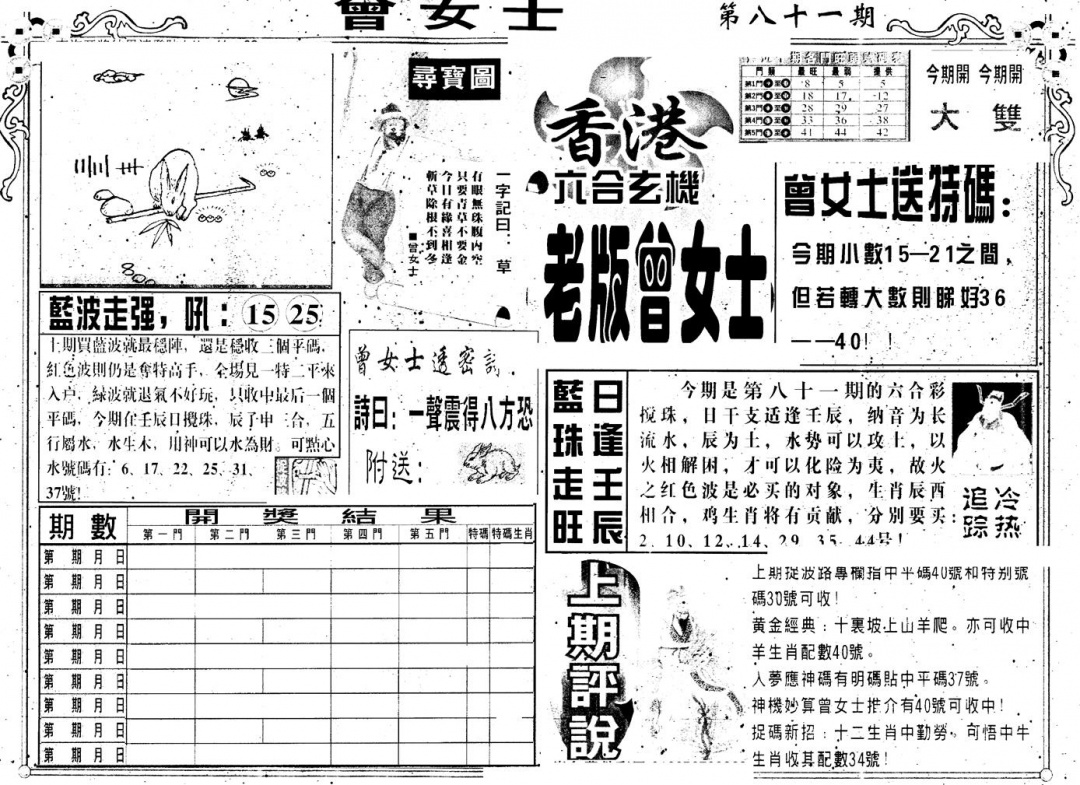 曾女士
第八十一期
尋寶圖
一字記曰：草
有眼無珠腹内空
只要青草不要金
今日有緣喜相逢
斬草除根不到冬
■曾女士
香港
六合玄機
老版曾女士
門類 最旺 最弱 提供
第1門 8 5 5
第2門 18 17 12
第3門 28 29 27
第4門 33 36 38
第5門 41 44 42
今期開 今期開
大 雙
曾女士送特碼：
今期小數15—21之間，
但若轉大數則睇好36
——40！！
藍波走强，吼：15 25
上期買藍波就最穩陣，還是穩收二個平碼，
紅色波則仍是奪特高手，全場見一特二平來
入户，緑波就退氣不好玩，只收中最后一個
平碼，今期在壬辰日攪珠，辰子申三合，五
行屬水，水生木，用神可以水為財。可點心
水號碼有：6、17、22、25、31、
37號！
曾女士透密訊
詩曰：一聲震得八方恐
附送：
藍珠走旺
日逢壬辰
今期是第八十一期的六合彩
搅珠，日干支适逢壬辰，纳音为长
流水，辰为土，水势可以攻土，以
火相解困，才可以化险为夷，故火
之红色波是必买的对象，生肖辰酉
相合，鸡生肖将有贡献，分别要买：
2、10、12、14、29、35、44号！
冷热
追踪
期數 開獎結果
第一門 第二門 第三門 第四門 第五門 特碼 特碼生肖
第 期 月 日
第 期 月 日
第 期 月 日
第 期 月 日
第 期 月 日
第 期 月 日
第 期 月 日
第 期 月 日
第 期 月 日
上期評說
上期捉波路專欄指中平碼40號和特别號
碼30號可收！
黄金經典：十裏坡上山羊爬。亦可收中
羊生肖配數40號。
人夢應神碼有明碼貼中平碼37號。
神機妙算曾女士推介有40號可收中！
捉碼新招：十二生肖中勤勞，可悟中牛
生肖收其配數34號！